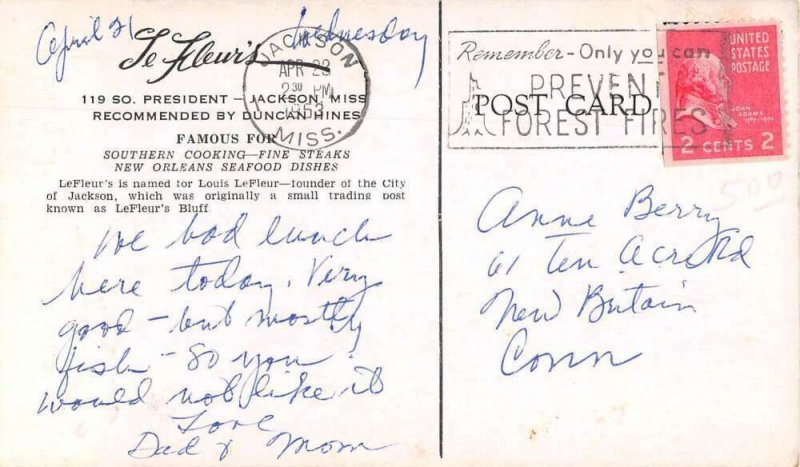 April 21 Wednesday
Le Fleur's
119 SO. PRESIDENT — JACKSON, MISS
RECOMMENDED BY DUNCAN HINES
FAMOUS FOR
SOUTHERN COOKING—FINE STEAKS
NEW ORLEANS SEAFOOD DISHES
LeFleur's is named for Louis LeFleur—founder of the City
of Jackson, which was originally a small trading post
known as LeFleur's Bluff
We had lunch
here today. Very
good – but mostly
fish – so you
would not like it
Love
Dad & Mom
JACKSON
APR 23
2 30 PM
1953
MISS.
Remember - Only you can
PREVENT
FOREST FIRES
POST CARD
UNITED
STATES
POSTAGE
JOHN
ADAMS
2 CENTS 2
500
Anne Berry
61 Ten Acre Rd
New Britain
Conn